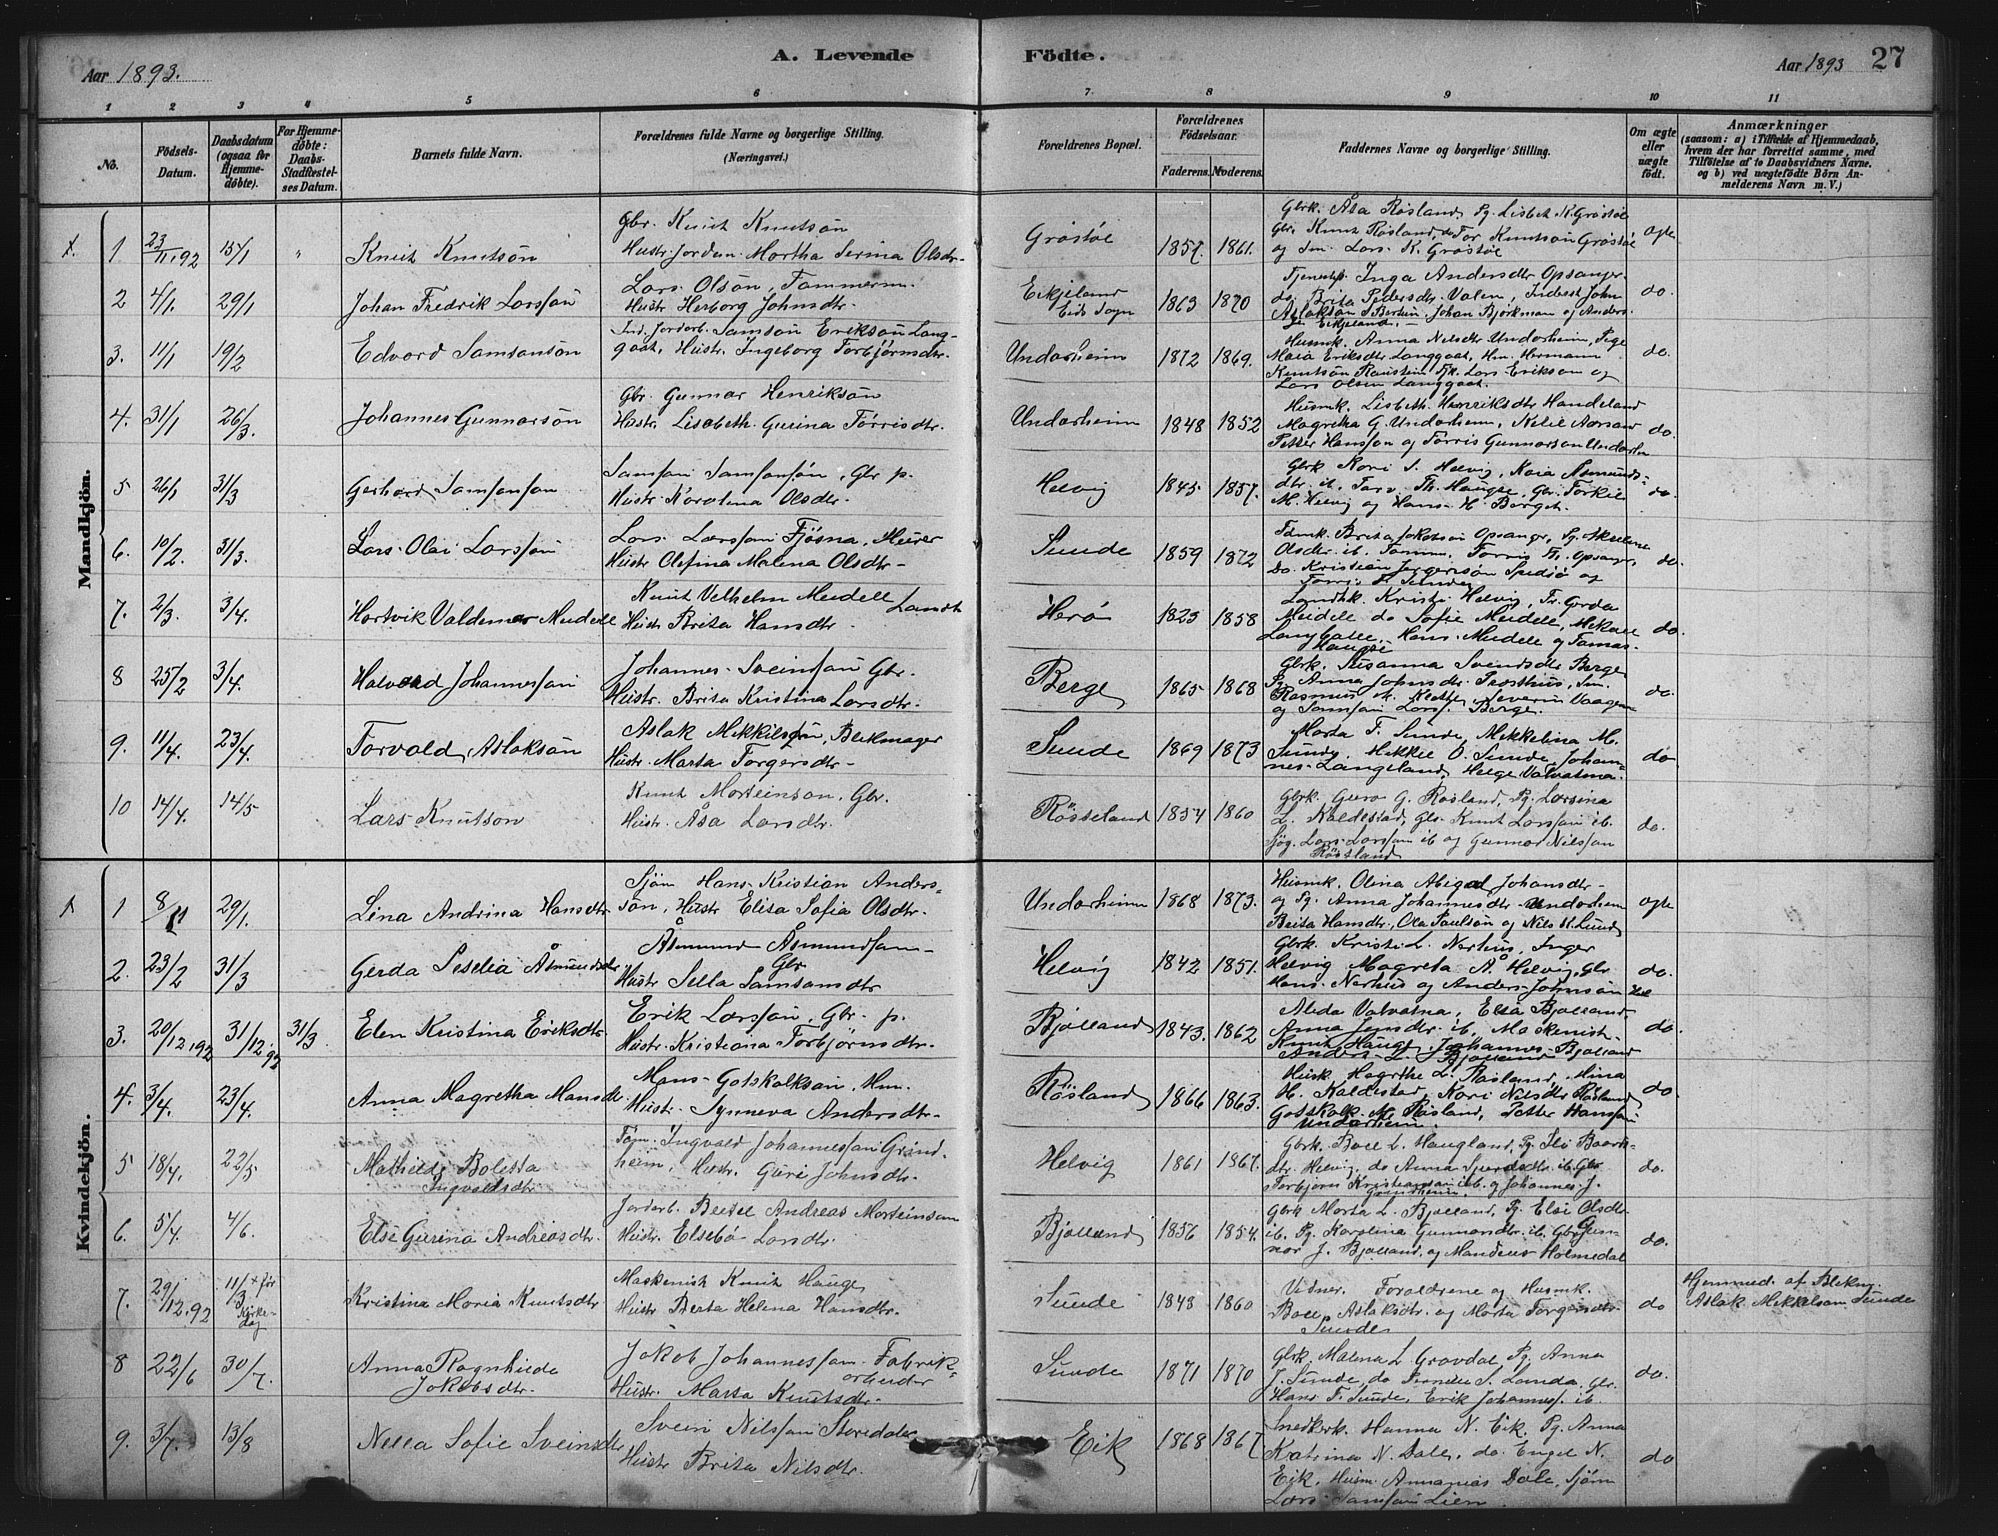 A. Levende Födte.
Aar 1893.
Aar 1893 27
1 2 3 4 5 6 7. 8 9 10 11
No.
Födsels-Datum.
Daabsdatum (ogsaa for Hjemmedøbte).
For Hjemmedøbte: Daabs-Stadfæstelses Datum.
Barnets fulde Navn.
Forældrenes fulde Navne og borgerlige Stilling. (Næringsvei.)
Forældrenes Bopæl.
Forældrenes Födselsaar.
Faderens. Moderens.
Faddernes Navne og borgerlige Stilling.
Om ægte eller uægte födt.
Anmærkninger
(saasom: a) i Tilfælde af Hjemmedaab, hvem der har forrettet samme, med Tilföielse af to Daabsvidners Navne. og b) ved uægtefödte Börn Anmelderens Navn m. V.)
Mandkjön.
1 23/11 92 15/1 " Knut Knutsön
Gbr. Knut Knutsön
Hustr Jordem. Martha Serina Olsdr.
Grostöe 1857. 1861.
Gbrk. Åsa Røsland, Pg. Lisbet K. Grøstöe
Gbr. Knut Røsland, Tor Knutsön Grøstöe
og Sm. Lars K. Grøstöe
ogte
2 4/1. 29/1 Johan Fredrik Larssön
Lars Olsön, Tømmerm.
Hustr Herborg Johnsdtr.
Eikjeland Eids Sogn 1863 1870
Tjenestp. Inga Andersdtr Opsanger
do. Brita Pedersdtr. Valen, Inderst John
Aslaksön, Johan Björkman og Anders
Eikjeland.
do.
3. 11/1 19/2 Edvard Samsonsön
Ind. Jordarb. Samson Eriksön Lang-
gaat, Hustr. Ingeborg Torbjörnsdtr.
Undarheim 1872 1869.
Husmk. Anna Nilsdtr Undarheim, Pige
Maria Eriksdtr Langgaat, Herman
Knutsön, Lars Erikson og
Lars Olsen Langgaat.
do.
4. 31/1 26/3. Johannes Gunnarsön
Gbr. Gunnar Henriksön
Hustr. Lisabeth Gurina Tørrisdtr.
Undarheim 1848 1852
Husmk. Lisbeth Henriksdtr Handeland
Magretha G. Undarheim,
Petter Hanssøn og Tørris Gunnarson Undarhm
do.
5 26/1 31/3 Gerhard Samsonson
Samson Samsonsön, Gbr p.
Hustr Karolina Olsdtr.
Helvig 1845 1857.
Gbrk Kari S. Helvig,
dtr. ib. Th. Haugse, Gbr. Torkil
M. Helvig og Hans H. Berget.
do.
6. 10/2. 31/3. Lars Olai Larssön
Lars Larsson Fjösna, Murer
Hustr Olefina Malena Olsdtr.
Sunde 1859 1872
Brita Jakobson Opsanger,
Olsdtr ib. Tømm. Tørris Th. Opsanger,
Do. Kristian Jørgensön og
Tørris T. Sunde
do.
7. 2/3. 3/4. Hartvik Valdemar Meidell
Knut Velhelm Meidell Landh
Hustr Brita Hansdtr.
Herö 1825 1858
Landhk. Kristi Helvig, Fr. Gerda
Meidell do Sofie Meidell, Mekal
Hans Meidell og Tomas
Haugse
do.
8 25/2 3/4. Halvard Johannesson
Johannes Sveinson Gbr.
Hustr. Brita Kristina Larsdtr.
Berge 1865 1868
Gbrk. Susanna Svendsdtr Berge
Pg. Anna Johnsdtr Prosthus, Sm.
Rasmus M. Severin Vaagen
og Samson Lars. Berge.
do.
9. 11/4. 23/4. Torvald Aslaksön
Aslak Mikkelsön, Blikmager
Hustr. Marta Torgersdtr.
Sunde 1869 1873
Marta T. Sunde, Mikkelina M.
Sunde, Mikkel O. Sunde, Johan-
nes Langeland, Helge Valvatna.
do
10 14/4. 14/5 Lars Knutson
Knut Morteinson, Gbr.
Hustr. Åsa Larsdtr.
Rösseland 1854 1860
Gbrk. Guro G. Røsland, Pg. Larsina
L. Kaldestad, Gbr Knut Larsson ib.
Lars Larsson ib og Gunnar Nilsson
Røsland
do.
Kvindekjön.
1 8/1 29/1. Lina Andrina Hansdtr
Sjöm Hans Kristian Anders-
sön, Hustr Elisa Sofia Olsdtr.
Undarheim 1868 1873.
Husmk. Olina Abigal Johansdtr.
og Pg. Anna Johannesdtr Undarheim
Brita Hansdtr. Ola Paulsön og Nils K. Lund
ogte
2. 23/2 31/3 Gerda Seselia Åsmundsdtr
Åsmund Åsmundsson Gbr
Hustr. Sella Samsonsdtr
Helvig 1842 1851.
Gbrk. Kristi L. Nerhus, Inger
Helvig Magreta Å. Helvig, Gbr
Hans Nerhus og Anders Johnsön Hel
do.
3. 20/12 92 31/12 92 31/3 Elen Kristina Eriksdtr
Erik Larssön, Gbr. p.
Hustr. Kristiana Torbjörnsdtr.
Bjölland 1843. 1862
Alida Valvatna, Elsa Bjölland,
Anna Jensdtr. ib, Maskenist
Knut Hauge, Johannes Bjölland
Anders L. Bjölland
do.
4. 3/4. 23/4. Anna Magretha Mansdtr
Mans Gotskalkson, Hm.
Hustr. Synneva Andersdtr.
Rösland 1866 1863.
Husk. Magrethe L. Røsland, Mina
H. Kaldestad, Kari Nilsdtr Røsland
Gotskalk M. Røsland, Petter Hanson
Undarheim.
do
5 18/4. 22/5 Mathilde Bolesta
Ingvaldsdtr
Tøm. Ingvald Johannesson Grind-
heim, Hustr. Guri Johnsdtr.
Helvig 1861 1867.
Gbrk. Boel L. Haugland, Pg. Baards-
dtr. Helvig, do Anna Sjurdsdtr. ib. Gbr
Torbjörn Kristianson ib. og Johannes J.
Grindheim.
do.
6. 5/4. 4/6. Else Gurina Andreasdtr.
Jordarb. Bertel Andreas Morteinson
Hustr. Elsebö Larsdtr.
Bjölland 1856 1854.
Gbrk Marta L. Bjölland, Pg. Elsi Olsdtr
ib. Pg. Karolina Gunnarsdtr. ib. Gbr Gun-
nar J. Bjølland, og Mandius Holmedal
do.
7. 29/12.92 11/3 + før Kirke-dag Kristina Maria Knutsdtr
Maskenist Knut Hauge
Hustr Berta Helena Hansdtr.
Sunde 1848 1860
Vidner. Foraldrene og Husmk.
Boel Aslaksdtr. og Marta Torgersdtr
Sunde
do
Hjemmed. af Blikm.
Aslak Mikkelson Sunde
8 22/6 30/7. Anna Ragnhilde
Jakobsdtr.
Jakob Johannesson Fabrik-
arbeider
Hustr. Marta Knutsdtr.
Sunde 1871 1870
Gbrk. Malena L. Gravdal, Pg. Anna
J. Sunde, do Pernille S. Landa, Gbr.
Hans T. Sunde, Erik Johanness. ib.
do.
9. 3/7. 13/8 Nella Sofie Sveinsdtr
Svein Nilsson Storedale
Hustr Brita Nilsdtr.
Eik 1868 1867
Snedkerk. Hanna N. Eik, Pg. Anna
Katrina N. Dale, do. Engel N.
Eik, Husm Annanias Dale, Sjöm
Lars Samson Lien.
do